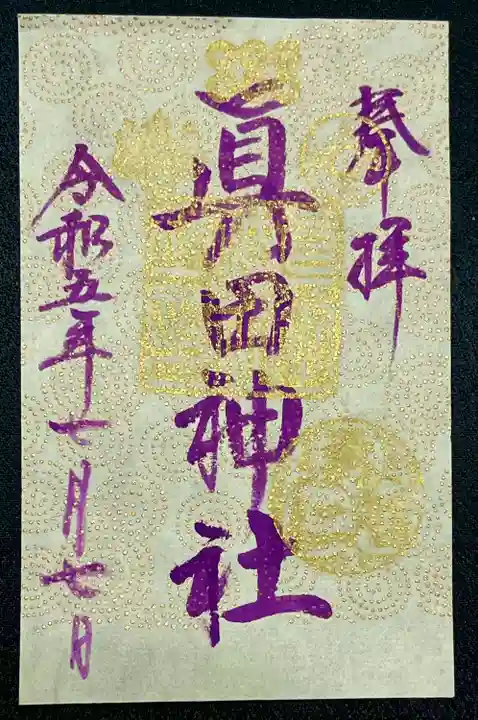 奉拝
眞田神社
令和五年七月七日